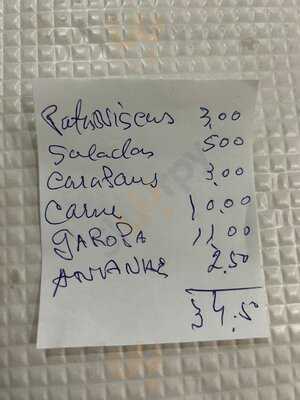 Pataniscus 3,00
Saladas 500
Carapaus 3,00
Carne 10.00
GAROPA 11,00
ANANAS 2.50
34.50